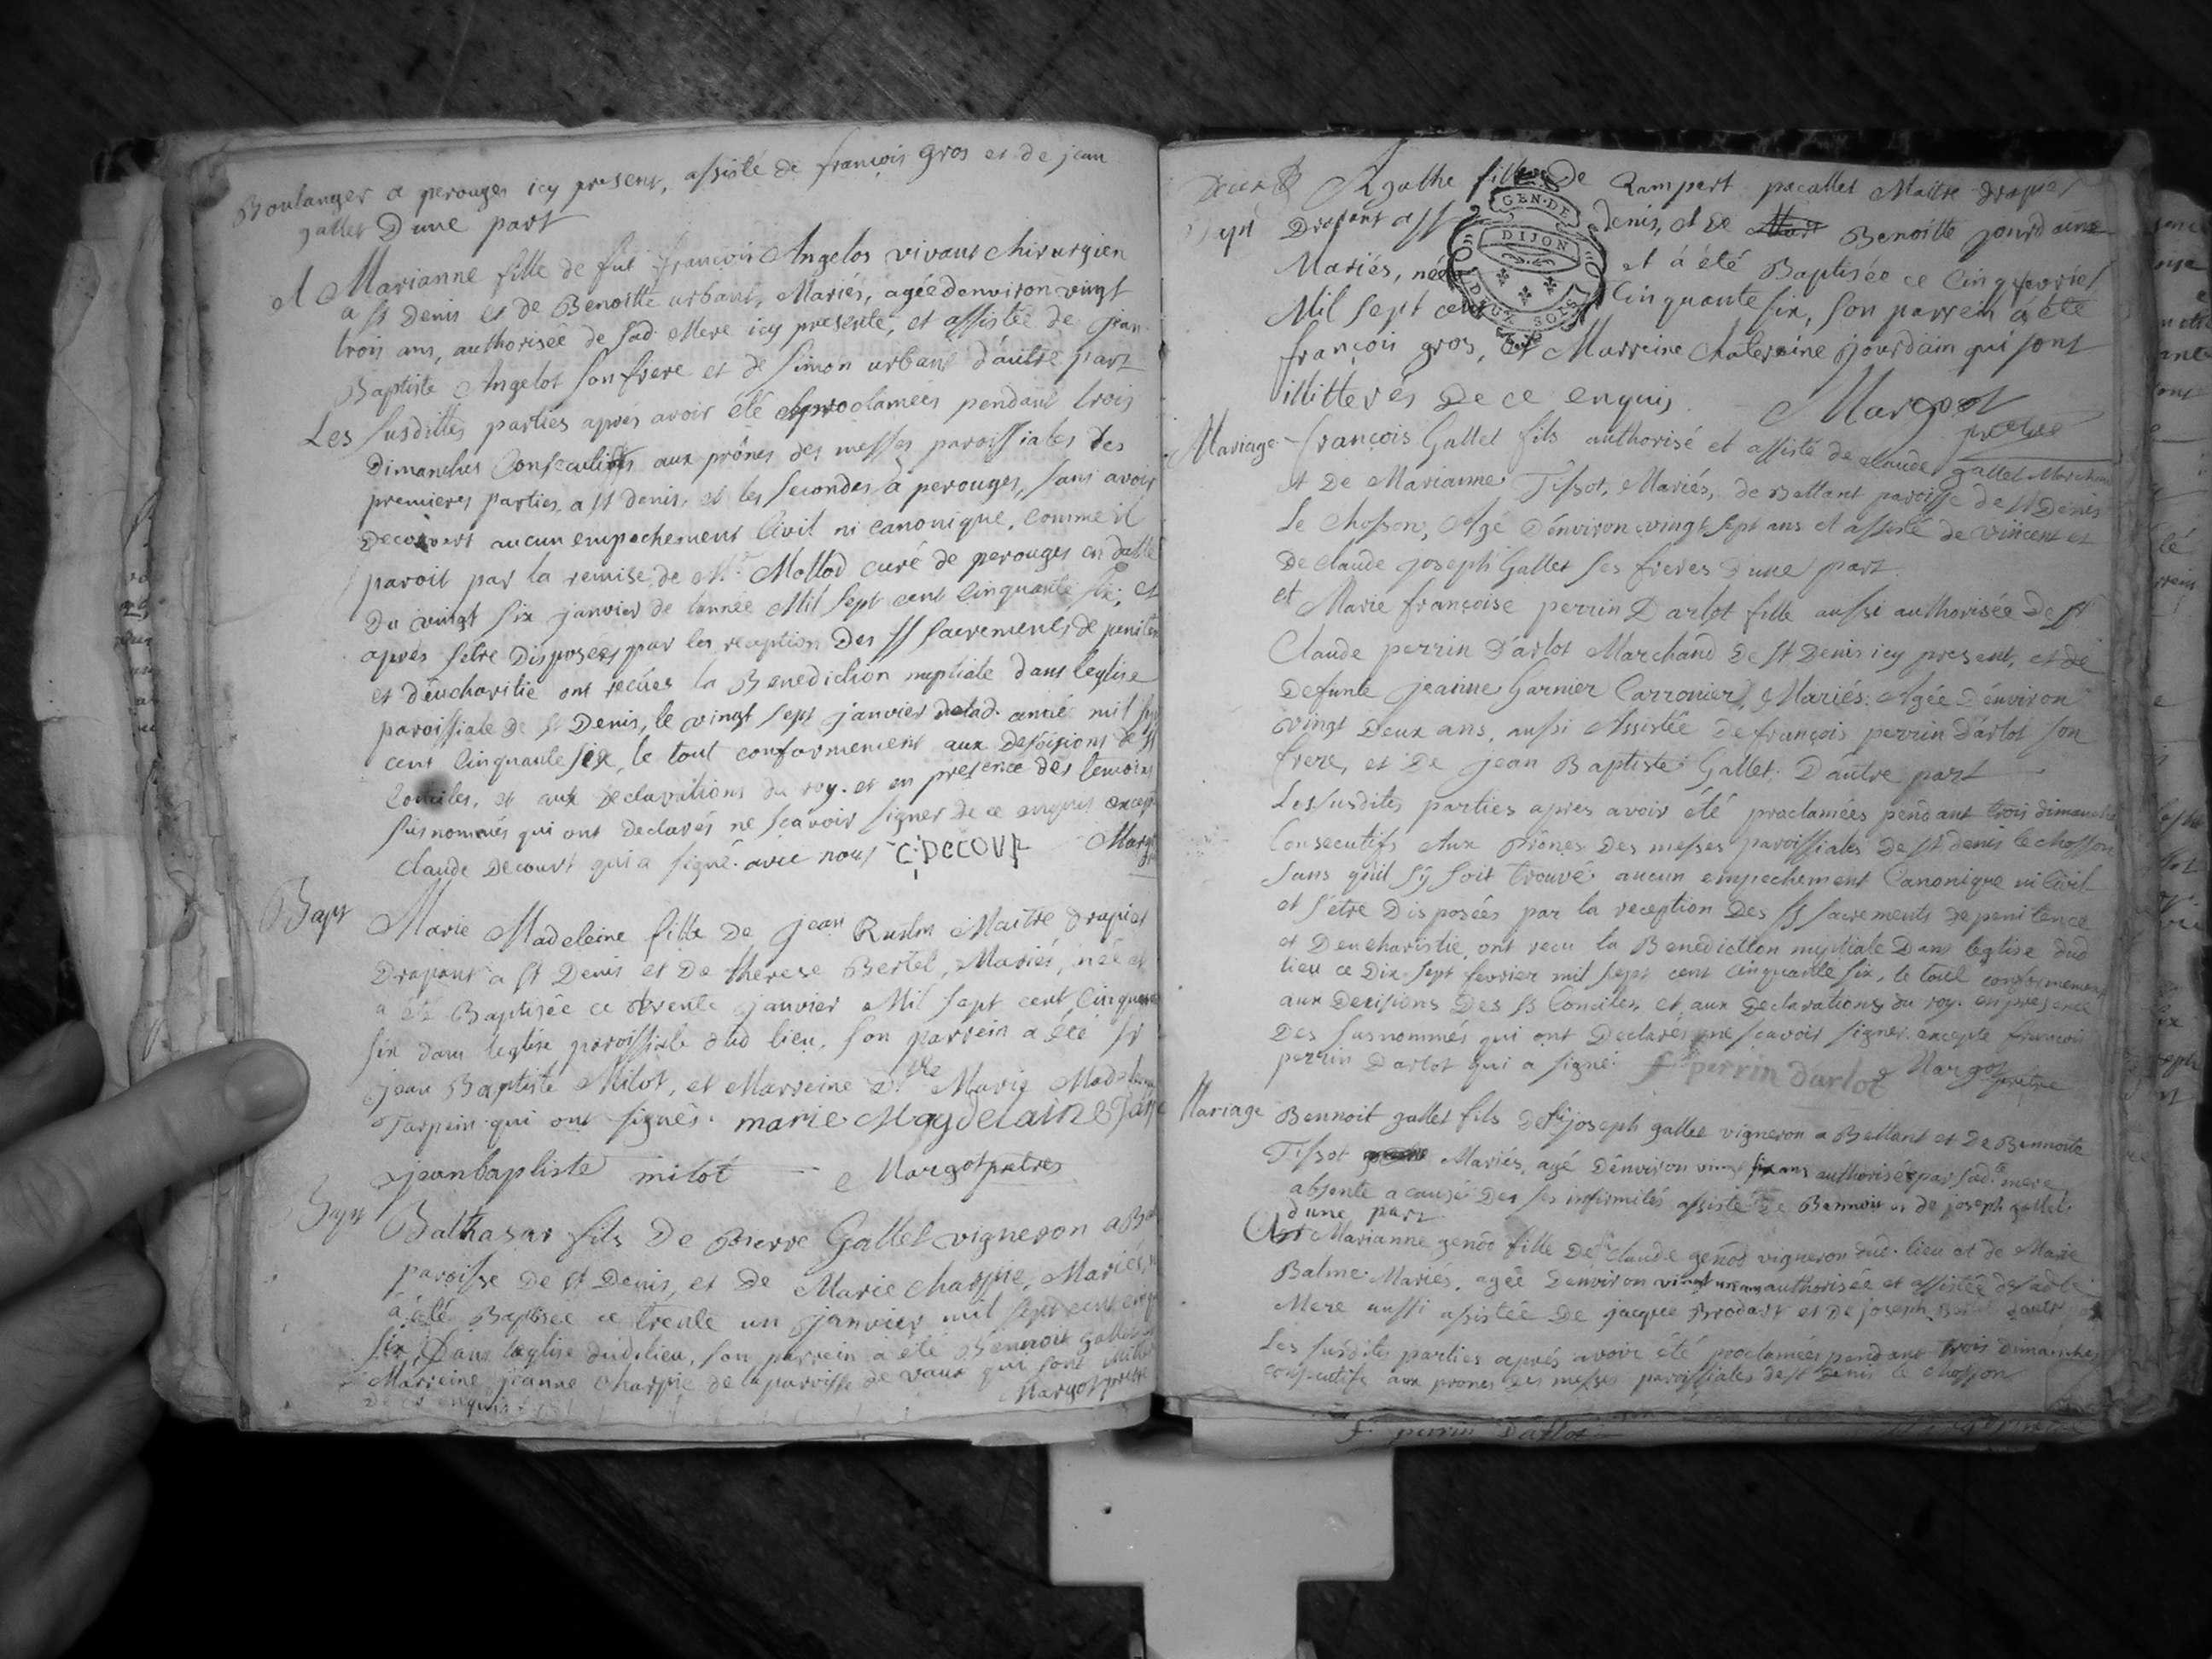 Boulanger a perouges icy present, assisté de françois gros et de jean
gallet D'une part
et Marianne fille de fut françois Angelos vivant chirurgien
a st Denis et de Benoitte urbant, Mariés, agée denviron vingt
trois ans, authorisée de sad. Mere icy presente, et assistée de jean
Baptiste Angelot son frere et de Simon urbant d'autre part
Les susdittes parties aprés avoir été proclamées pendant trois
Dimanches Consecutifs aux prônes des messes paroissiales des
premieres parties a st denis, et les secondes a perouges, sans avoir
Decouvert aucun empechement Civil ni canonique, comme il
paroit par la remise de Mr. Mollod curé de perouges en datte
Du vingt six janvier de lannée Mil sept cent Cinquante six, et
aprés setre Disposées par la reception Des SS sacrements de peniten
et d'eucharitie ont recües la Benediction nuptiale dans leglise
paroissiale de st Denis, le vingt sept janvier delad. année mil sept
cent Cinquante six, le tout conformement aux Decisions de SS
Conciles, et aux Declarations du roy. et en presence des temoins
susnommés qui ont declarés ne scavoir signer de ce enquis excepté
claude Decourt qui a signé avec nous C:DECOUR Margot
Bapt Marie Madeleine fille de jean Maitre drapier
Drapant a st Denis et de therese Bertel, Mariés, née et
a été Baptisée ce trente janvier Mil sept cent Cinquante
six dans leglise paroissiale dud lieu, son parrein a été sr
jean Baptiste Milot, et Marreine Marie Madelaine
Tarpin qui ont signés. marie Magdelaine
jeanbaptiste milot Margot pretre
Bapt Balthasar fils De Pierre Gallet vigneron a
paroisse De st Denis, et De Marie charpie, Mariés,
a été Baptisée ce trente un janvier mil sept cent
six, Dans leglise dud. lieu, son parrein a été Bennoit gallet
Marreine jeanne charpie de la paroisse de vaux qui sont
De ce enquis Margot pretre
Agathe fille De Rampert pacallet Maitre drapier
Drapant a st denis, et de Benoitte jourdaine
Mariés, née et a été Baptisée ce Cinq fevrier
Mil sept cent Cinquante six, son parrein a été
françois gros, et Marreine Catereine jourdain qui sont
illitterés De ce enquis Margot
pretre
Mariage françois Gallet fils authorisé et assisté de claude gallet Marchand
et De Marianne Tissot, Mariés, de Bettant paroisse de st Denis
Le Chosson, Agé D'environ vingt sept ans et assisté de vincent et
De claude joseph Gallet ses freres d'une part
et Marie françoise perrin Darlot fille aussi authorisée de sr
Claude perrin Darlot Marchand De st Denis icy present, et de
Defunte jeanne Garnier Carronier, Mariés. Agée D'environ
vingt Deux ans, aussi Assistée De françois perrin Darlot son
frere, et De jean Baptiste Gallet. D'autre part
Les susdites parties apres avoir été proclamées pendant trois dimanches
Consecutifs Aux Prônes Des messes paroissiales De st denis le chosson
sans qu'il s'y soit trouvé aucun empechement Canonique ni Civil
et s'etre Disposées par la reception Des SS sacrements de penitence
et Deucharistie, ont recu la Benediction nuptiale Dans leglise dud
lieu ce Dix sept fevrier mil sept cent cinquante six, le tout conformement
aux Decisions Des SS Conciles, et aux Declarations du roy. en presence
Des susnommés qui ont Declarés ne scavoir signer excepté francois
perrin Darlot qui a signé. f perrin darlot Margot
pretre
Mariage Bennoit gallet fils De joseph gallet vigneron a Bettant et De Bennoite
Tissot Mariés, agé Denviron vingt six ans authorisé par sad. mere
absente a cause Des ses infirmités assisté de Bennoit et de joseph gallet
d'une part
Et Marianne genod fille De claude genod vigneron dud. lieu et de Marie
Balme Mariés, agée Denviron vingt un an authorisée et assistée de sadte
Mere aussi assistée De jacque Brodart et De joseph
Les susdites parties aprés avoir été proclamées pendant trois dimanches
consecutifs aux prones des messes paroissiales de st Denis le chosson
f. perrin Darlot